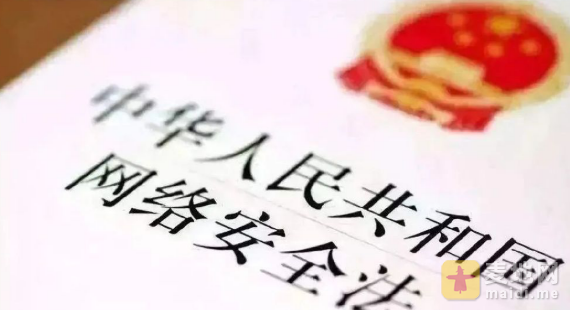 中华人民共和国
网络安全法
麦地网
maidi.me